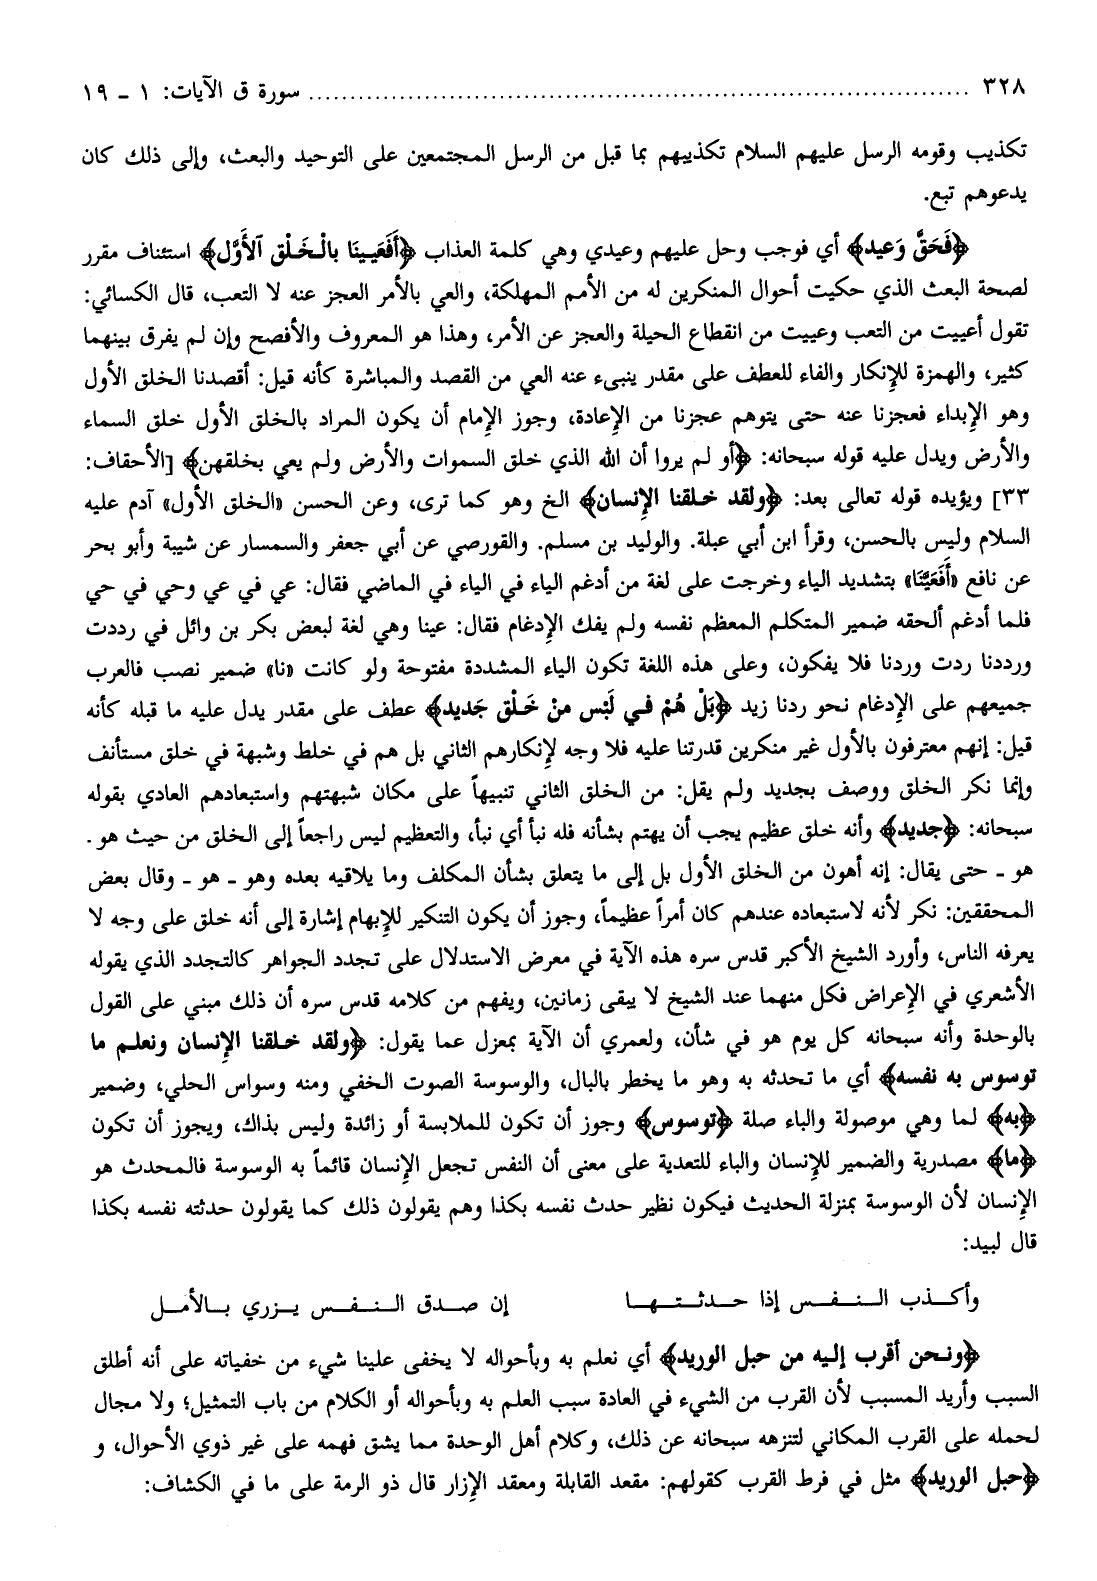 ٣٢٨ ........................................................................ سورة ق الآيات: ١ ـ ١٩
تكذيب وقومه الرسل عليهم السلام تكذيبهم بما قبل من الرسل المجتمعين على التوحيد والبعث، وإلى ذلك كان
يدعوهم تبع.
﴿فَحَقَّ وَعيد﴾ أي فوجب وحل عليهم وعيدي وهي كلمة العذاب ﴿أَفَعَيينَا بالْخَلْق آلأَوَّل﴾ استئناف مقرر
لصحة البعث الذي حكيت أحوال المنكرين له من الأمم المهلكة، والعي بالأمر العجز عنه لا التعب، قال الكسائي:
تقول أعييت من التعب وعييت من انقطاع الحيلة والعجز عن الأمر، وهذا هو المعروف والأفصح وإن لم يفرق بينهما
كثير، والهمزة للإنكار والفاء للعطف على مقدر ينبىء عنه العي من القصد والمباشرة كأنه قيل: أقصدنا الخلق الأول
وهو الإبداء فعجزنا عنه حتى يتوهم عجزنا من الإعادة، وجوز الإمام أن يكون المراد بالخلق الأول خلق السماء
والأرض ويدل عليه قوله سبحانه: ﴿أو لم يروا أن الله الذي خلق السموات والأرض ولم يعي بخلقهن﴾ [الأحقاف:
٣٣] ويؤيده قوله تعالى بعد: ﴿ولقد خلقنا الإنسان﴾ الخ وهو كما ترى، وعن الحسن «الخلق الأول» آدم عليه
السلام وليس بالحسن، وقرأ ابن أبي عبلة. والوليد بن مسلم. والقورصي عن أبي جعفر والسمسار عن شيبة وأبو بحر
عن نافع «أَفَعَيَّنَا» بتشديد الياء وخرجت على لغة من أدغم الياء في الياء في الماضي فقال: عي في عي وحي في حي
فلما أدغم ألحقه ضمير المتكلم المعظم نفسه ولم يفك الإدغام فقال: عينا وهي لغة لبعض بكر بن وائل في رددت
ورددنا ردت وردنا فلا يفكون، وعلى هذه اللغة تكون الياء المشددة مفتوحة ولو كانت «نا» ضمير نصب فالعرب
جميعهم على الإدغام نحو ردنا زيد ﴿بَلْ هُمْ في لَبْس منْ خَلْق جَديد﴾ عطف على مقدر يدل عليه ما قبله كأنه
قيل: إنهم معترفون بالأول غير منكرين قدرتنا عليه فلا وجه لإنكارهم الثاني بل هم في خلط وشبهة في خلق مستأنف
وإنما نكر الخلق ووصف بجديد ولم يقل: من الخلق الثاني تنبيهاً على مكان شبهتهم واستبعادهم العادي بقوله
سبحانه: ﴿جديد﴾ وأنه خلق عظيم يجب أن يهتم بشأنه فله نبأ أي نبأ، والتعظيم ليس راجعاً إلى الخلق من حيث هو ـ
هو ـ حتى يقال: إنه أهون من الخلق الأول بل إلى ما يتعلق بشأن المكلف وما يلاقيه بعده وهو ـ هو ـ وقال بعض
المحققين: نكر لأنه لاستبعاده عندهم كان أمراً عظيماً، وجوز أن يكون التنكير للإبهام إشارة إلى أنه خلق على وجه لا
يعرفه الناس، وأورد الشيخ الأكبر قدس سره هذه الآية في معرض الاستدلال على تجدد الجواهر كالتجدد الذي يقوله
الأشعري في الإعراض فكل منهما عند الشيخ لا يبقى زمانين، ويفهم من كلامه قدس سره أن ذلك مبني على القول
بالوحدة وأنه سبحانه كل يوم هو في شأن، ولعمري أن الآية بمعزل عما يقول: ﴿ولقد خلقنا الإنسان ونعلم ما
توسوس به نفسه﴾ أي ما تحدثه به وهو ما يخطر بالبال، والوسوسة الصوت الخفي ومنه وسواس الحلي، وضمير
﴿به﴾ لما وهي موصولة والباء صلة ﴿توسوس﴾ وجوز أن تكون للملابسة أو زائدة وليس بذاك، ويجوز أن تكون
﴿ما﴾ مصدرية والضمير للإنسان والباء للتعدية على معنى أن النفس تجعل الإنسان قائماً به الوسوسة فالمحدث هو
الإنسان لأن الوسوسة بمنزلة الحديث فيكون نظير حدث نفسه بكذا وهم يقولون ذلك كما يقولون حدثته نفسه بكذا
قال لبيد:
وأكذب النفس إذا حدثتها إن صدق النفس يزري بالأمل
﴿ونحن أقرب إليه من حبل الوريد﴾ أي نعلم به وبأحواله لا يخفى علينا شيء من خفياته على أنه أطلق
السبب وأريد المسبب لأن القرب من الشيء في العادة سبب العلم به وبأحواله أو الكلام من باب التمثيل؛ ولا مجال
لحمله على القرب المكاني لتنزهه سبحانه عن ذلك، وكلام أهل الوحدة مما يشق فهمه على غير ذوي الأحوال، و
﴿حبل الوريد﴾ مثل في فرط القرب كقولهم: مقعد القابلة ومعقد الإزار قال ذو الرمة على ما في الكشاف: